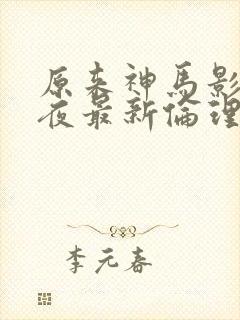 原来神馬影
夜最新倫理
李元春